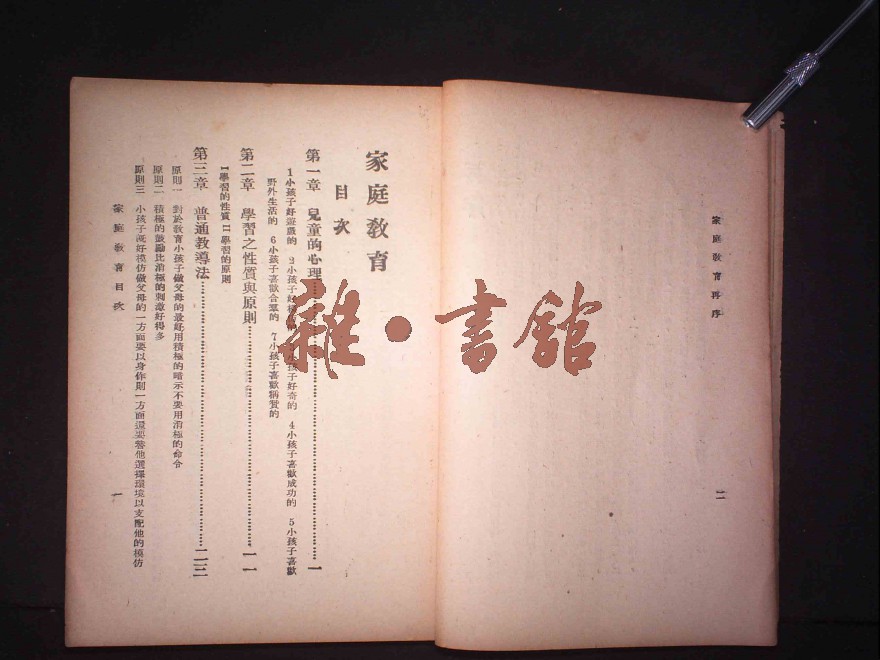 家庭教育再序
二
家庭教育
目次
第一章 兒童的心理……一
1小孩子好遊戲的 2小孩子好模 小孩子好奇的 4小孩子喜歡成功的 5小孩子喜歡
野外生活的 6小孩子喜歡合羣的 7小孩子喜歡稱贊的
第二章 學習之性質與原則……一一
I學習的性質 II學習的原則
第三章 普通教導法……二三
原則一 對於教育小孩子做父母的最好用積極的暗示不要用消極的命令
原則二 積極的鼓勵比消極的刺激好得多
原則三 小孩子旣好模仿做父母的一方面要以身作則一方面還要替他選擇環境以支配他的模仿
家庭教育目次
一
雜·書館